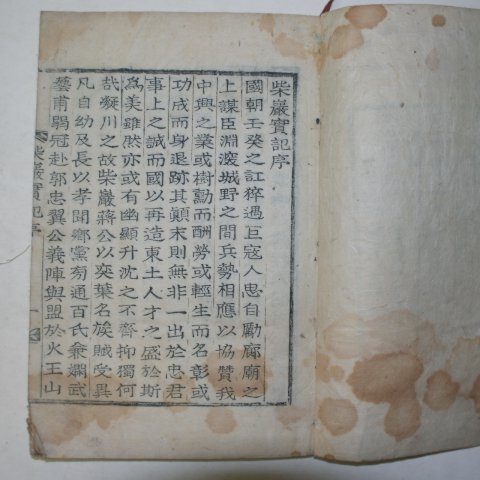 柴巖實記序
國朝壬癸之訌猝遇巨寇人思自勵廊廟之
上謀臣淵邃城野之間兵勢相應以協贊我
中興之業或樹勳而酬勞或輕生而名彰或
功成而身退跡其顛末則無非一出於忠君
事上之誠而國以再造東土人才之盛於斯
爲美雖然亦或有幽顯升沈之不齊抑獨何
哉凝川之故柴巖蔣公以奕葉名族賦受異
凡自幼及長以孝聞鄉黨旁通百氏兼嫺武
藝甫弱冠赴郭忠翼公義陣與盟於火王山
柴巖實記序
一